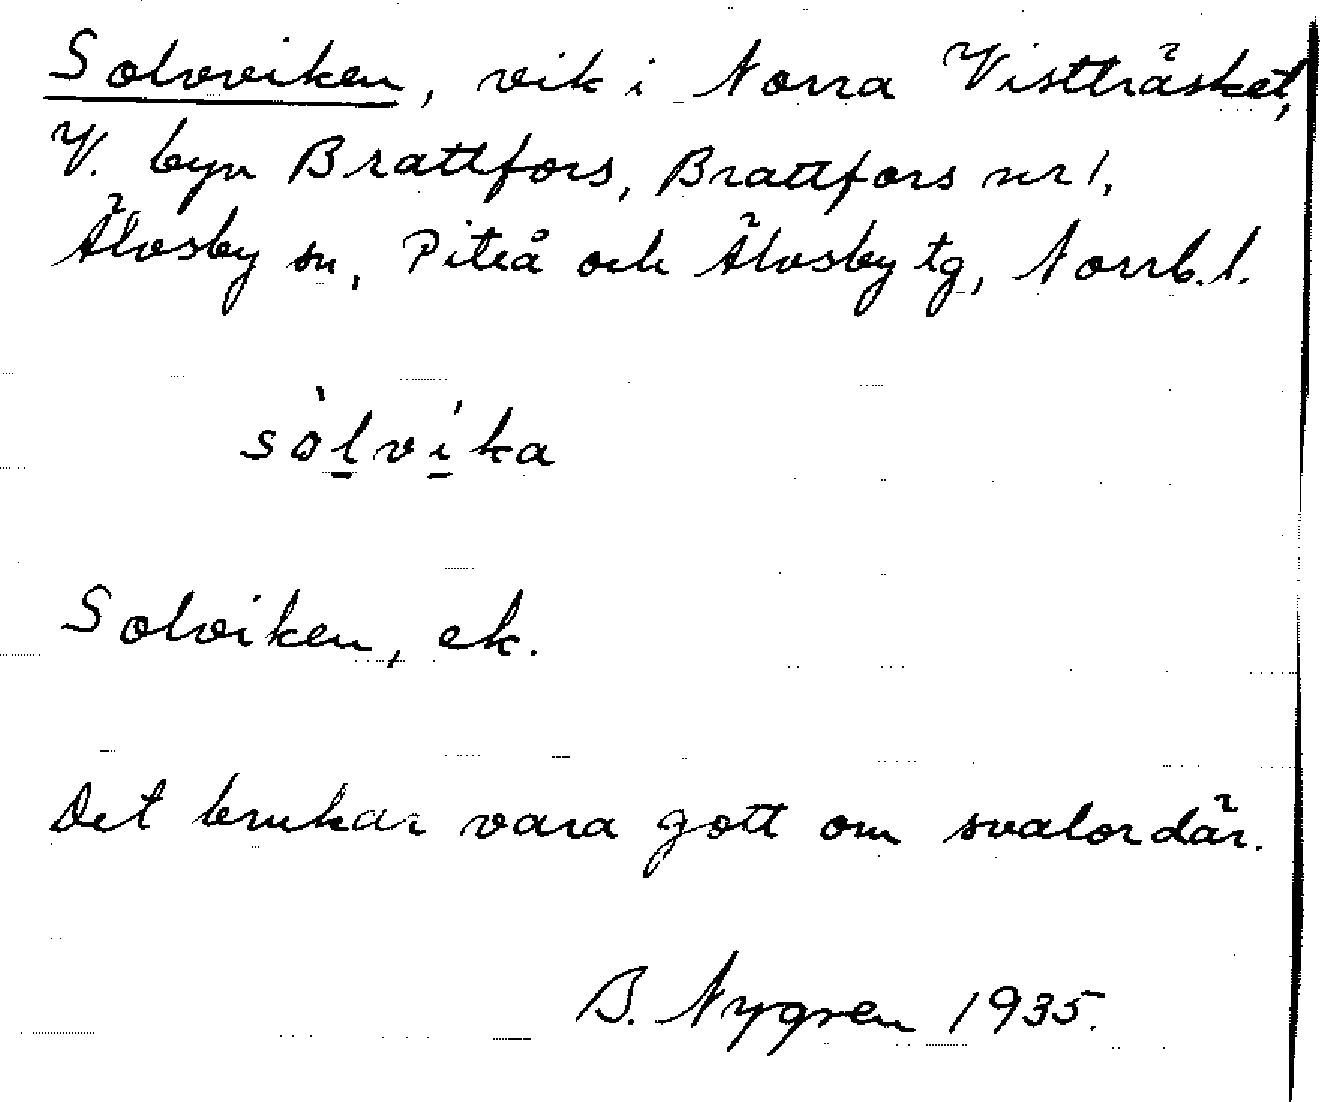 Solvviken, vik i Norra Vistträsket,
V. byn Brattfors, Brattfors nr 1,
Älvsby sn, Piteå och Älvsby tg, Norrb. l.
sòlvíka
Solviken, ek.
Det brukar vara gott om svalor där.
B. Nygren 1935.